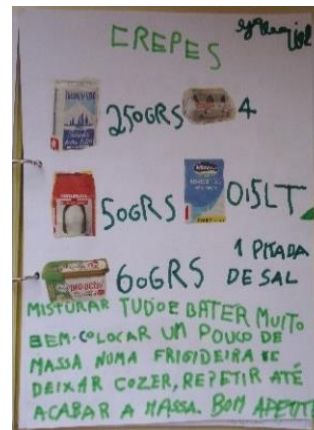 CREPES
250GRS 4
50GRS 0,5LT
1 PITADA
60GRS DE SAL
MISTURAR TUDO E BATER MUITO
BEM. COLOCAR UM POUCO DE
MASSA NUMA FRIGIDEIRA E
DEIXAR COZER, REPETIR ATÉ
ACABAR A MASSA. BOM APETIT